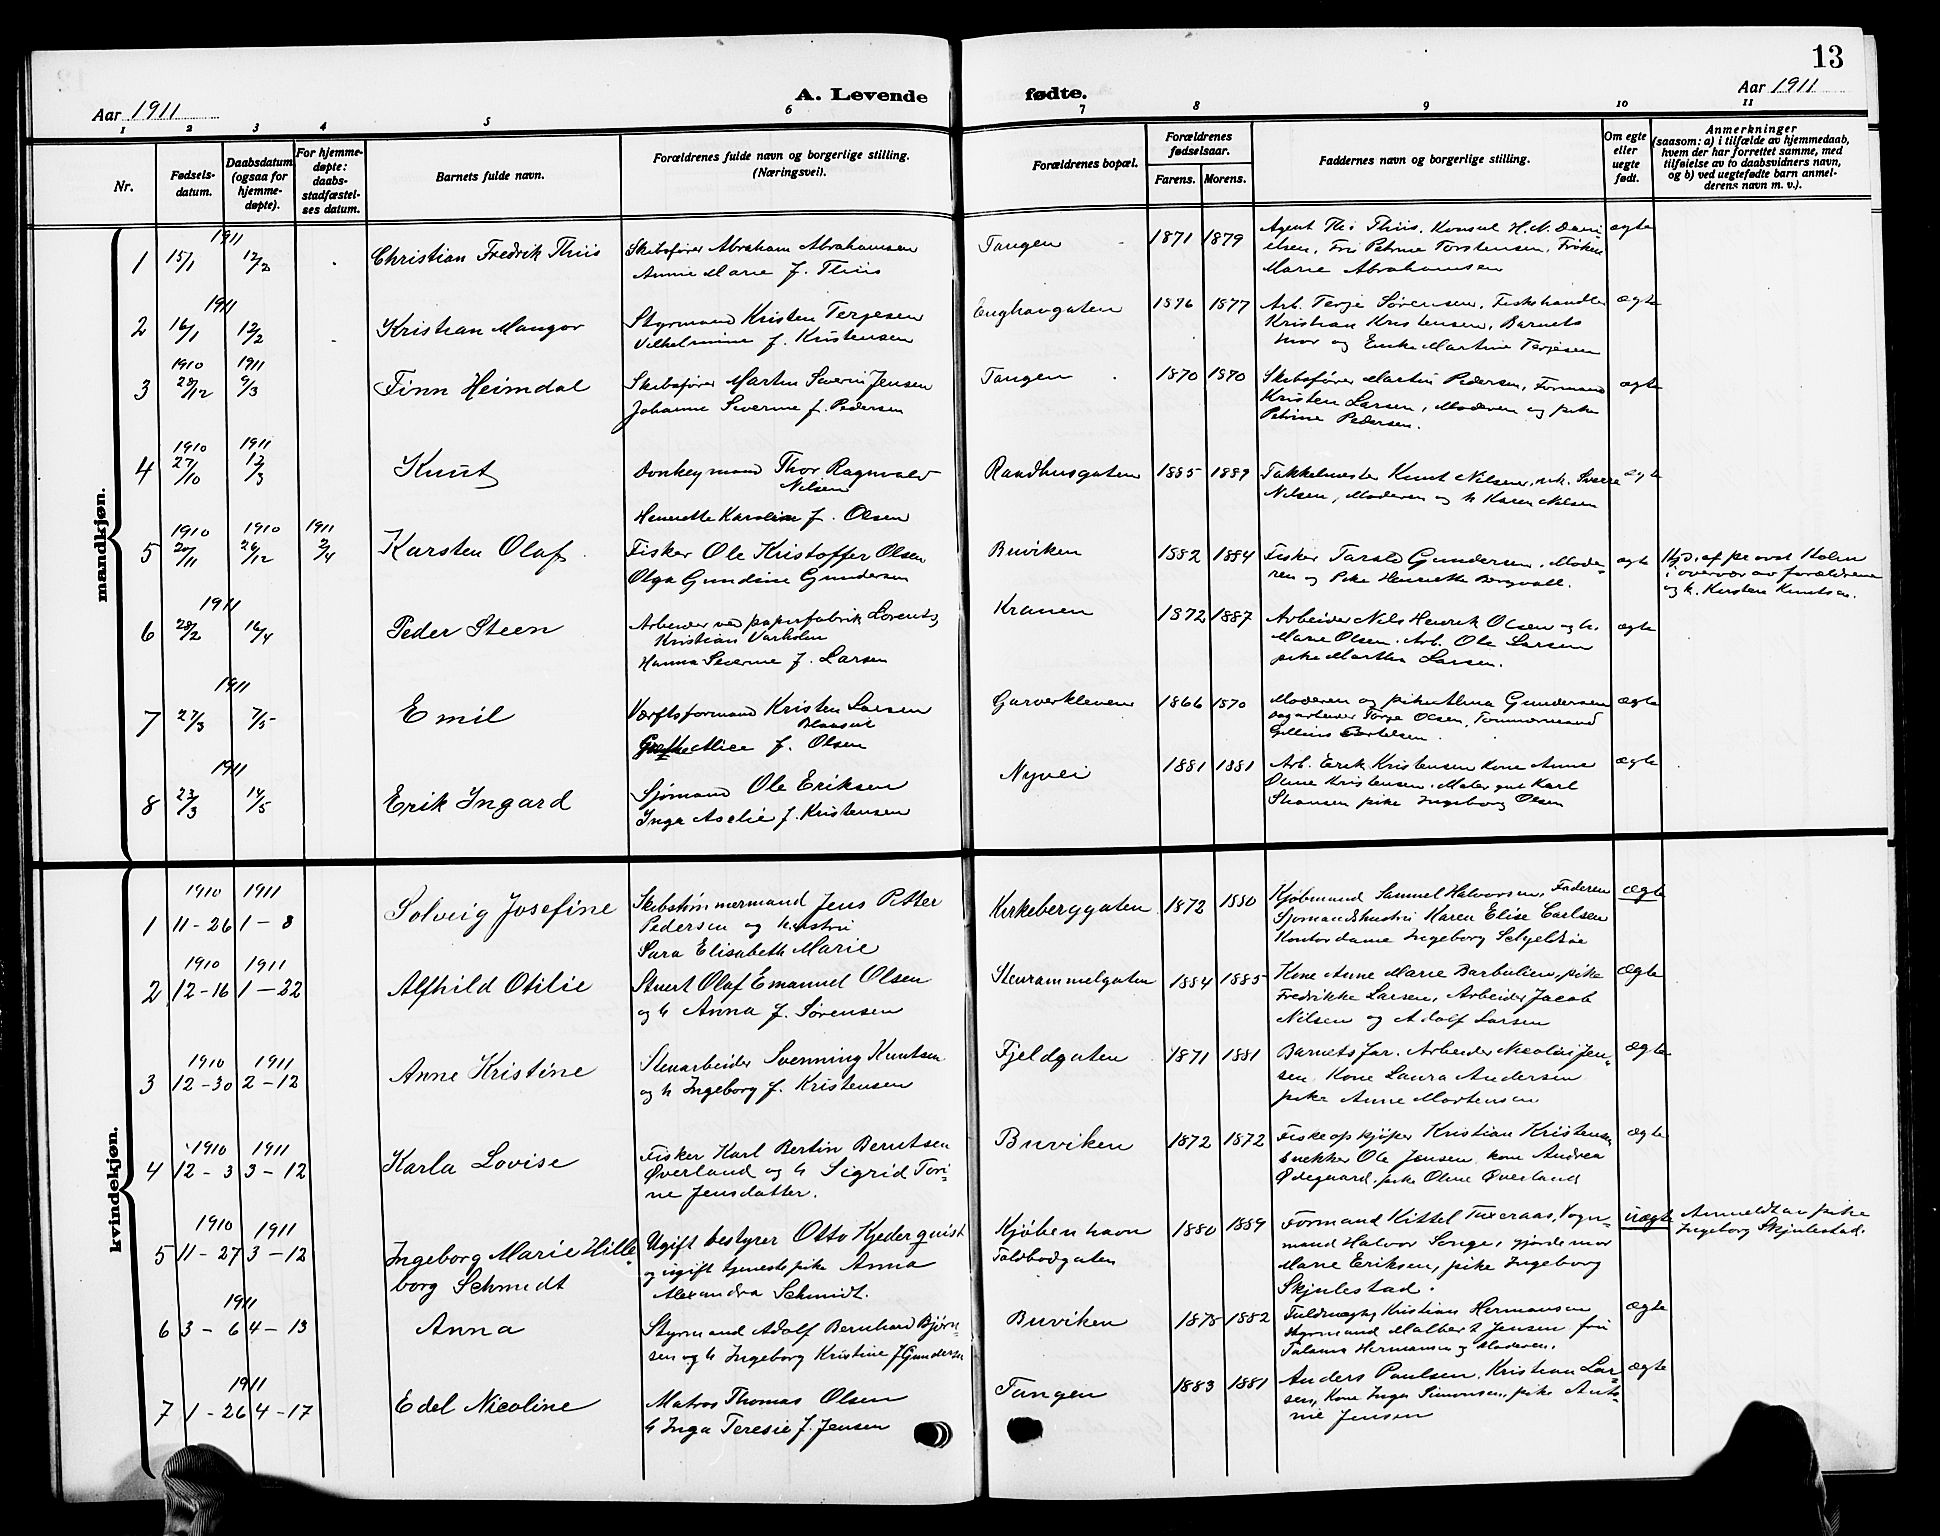 13
Aar 1911
A. Levende fødte.
Aar 1911
1 2 3 4 5 6 7 8 9 10 11
Nr.
Fødsels-
datum.
Daabsdatum
(ogsaa for
hjemme-
døpte).
For hjemme-
døpte:
daabs-
stadfæstel-
ses datum.
Barnets fulde navn.
Forældrenes fulde navn og borgerlige stilling.
(Næringsvei).
Forældrenes bopæl.
Forældrenes
fødselsaar.
Farens. Morens.
Faddernes navn og borgerlige stilling.
Om egte
eller
uegte
født.
Anmerkninger
(saasom: a) i tilfælde av hjemmedaab,
hvem der har forrettet samme, med
tilføielse av to daabsvidners navn,
og b) ved uegtefødte barn anmel-
derens navn m. v.).
mandkjøn.
1911
1 15/1 12/2 Christian Fredrik Thiis
Skibsfører Abraham Abrahamsen
Annie Marie f. Thiis
Tangen 1871 1879
Agent Ths Thiis, Konsul H. N. Dani-
elsen, Fru Petrine Torstensen, Frøken
Marie Abrahamsen
ægte
1911
2 16/1 12/2 Kristian Mangor
Styrmand Kristen Terjesen
Vilhelmine f. Kristensen
Enghavgaten 1876 1877
Arb. Terje Sørensen, Fiskehandler
Kristian Kristensen, Barnets
mor og Enke Martine Terjesen
ægte
1910 1911
3 28/12 9/3 Finn Heimdal
Skibsfører Martin Severin Jensen
Johanne Severine f. Pedersen
Tangen 1870 1870
Skibsfører Martin Pedersen, Formand
Kristen Larsen, Moderen og pike
Petrine Pedersen.
ægte
1910 1911
4 27/10 12/3 Knut
Donkeymand Thor Ragnvald
Nilsen
Henriette Karoline f. Olsen
Raadhusgaten 1885 1889
Takkelmester Knut Nilsen, Sverre
Nilsen, Moderen og h Karen Nilsen
ægte
1910 1910 1911
5 20/11 26/12 2/4 Karsten Olaf
Fisker Ole Kristoffer Olsen
Olga Gundine Gundersen
Buviken 1882 1884
Fisker Tarald Gundersen, Mode-
ren og Pike Henriette Bergvall.
ægte
Hjd. af provst Holm
i overvær av forældrene
og k. Kirsten Knutsen.
1911
6 28/2 16/4 Peder Steen
Arbeider ved papirfabrik Lorents
Kristian Varholm
Hanna Severine f. Larsen
Kranen 1872 1887
Arbeider Nils Henrik Olsen og h.
Marie Olsen, Arb. Ole Larsen
pike Marthe Larsen.
ægte
1911
7 27/3 7/5 Emil
Værftsformand Kristen Larsen
Blaasut
Grethe Alice f. Olsen
Garverkleven 1866 1870
Moderen og pike Alma Gundersen
Terje Olsen, Tømmermand
Bertelsen.
ægte
1911
8 23/3 14/5 Erik Ingard
Sjømand Ole Eriksen
Inga Aselie f. Kristensen
Nyvei 1881 1881
Arb. Erik Kristensen Kone Anne
Oline Kristensen, Maler gut Karl
Skansen pike Ingeborg Olsen
ægte
kvindekjøn.
1910 1911
1 11-26 1-8 Solveig Josefine
Skibstømmermand Jens Petter
Pedersen og hustru
Sara Elisabeth Marie
Kirkebergaten 1872 1880
Kjøbmand Samuel Halvorsen, Faderen
Sjømandshustru Karen Elise Carlsen
Kontordame Ingeborg Schjeldrøe
ægte
1910 1911
2 12-16 1-22 Alfhild Otilie
Stuert Olaf Emanuel Olsen
og h Anna f. Sørensen
Stenrammelgaten 1884 1885
Kone Anne Marie Barbulien, pike
Fredrikke Larsen, Arbeider Jacob
Nilsen og Adolf Larsen
ægte
1910 1911
3 12-30 2-12 Anne Kristine
Stenarbeider Svenning Knutsen
og h Ingeborg f. Kristensen
Fjeldgaten 1871 1881
Barnets far, Arbeider Nicolai Jen-
sen Kone Laura Andersen
pike Anne Mortensen
ægte
1910 1911
4 12-3 3-12 Karla Lovise
Fisker Karl Bertin Berntsen
Øverland og h Sigrid Tori-
ne Jensdatter.
Buviken 1872 1872
Fiskeopkjøper Kristian Kristensen
snekker Ole Jensen, kone Andrea
Ødegaard, pike Oline Øverland
ægte
1910 1911
5 11-27 3-12 Ingeborg Marie Hille-
borg Schmidt
Ugift bestyrer Otto Kjederquist
og ugift tjenestepike Anna
Alexandra Schmidt.
Kjøbenhavn
Toldbodgaten
1880 1889
Formand Kittel Tuxeraas, Vogn-
mand Halvor Songe, gjordemor
Marie Eriksen, pike Ingeborg
Skjulestad.
uægte
Anmeldt av pike
Ingeborg Skjulestad.
1911
6 3-6 4-13 Anna
Styrmand Adolf Bernhard Bjørn-
sen og h Ingeborg Kristine f Gundersen
Buviken 1878 1882
Fuldmægtig Kristian Hermansen
styrmand Malbert Jensen fru
Hermansen og Moderen.
ægte
1911
7 1-26 4-17 Edel Nicoline
Matros Thomas Olsen
h Inga Teresie f. Jensen
Tangen 1883 1881
Anders Paulsen, Kristian Lar-
sen, Kone Inga Simonsen, pike Anto-
nie Jensen
ægte